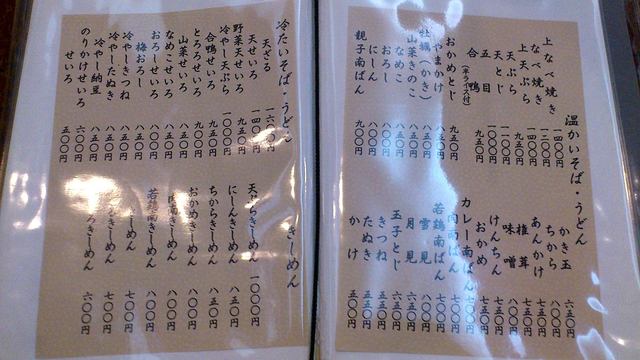 温かいそば・うどん
上なべ焼き 一四〇〇円
なべ焼き 一二〇〇円
上天ぷら 一四〇〇円
天ぷら 九五〇円
天とじ 一一〇〇円
五目 一〇〇〇円
合鴨 九五〇円
おかめとじ(半ライス付) 九五〇円
やまかけ 八五〇円
牡蠣(かき)
山菜きのこ 八五〇円
なめこ 八五〇円
おろし 八〇〇円
にしん 八五〇円
親子南ばん 九〇〇円
かき玉 六五〇円
ちから 七五〇円
あんかけ 八〇〇円
椎茸 七五〇円
味噌 七五〇円
けんちん 七五〇円
おかめ 七五〇円
カレー南ばん 七五〇円
肉南ばん 七〇〇円
若鶏南ばん 七〇〇円
雪見 八〇〇円
月見 六五〇円
玉子とじ 六五〇円
きつね 五五〇円
たぬき 五五〇円
かけ 五〇〇円
冷たいそば・うどん
天ざる 一六〇〇円
天せいろ 一四〇〇円
野菜天せいろ 九五〇円
冷やし天ぷら 一〇〇〇円
合鴨せいろ 九五〇円
とろろせいろ 九〇〇円
山菜せいろ 八五〇円
なめこせいろ 八五〇円
おろしせいろ 八五〇円
梅おろし 八五〇円
冷やしきつね 八五〇円
冷やしたぬき 八五〇円
冷やし納豆 八〇〇円
のりかけせいろ 六〇〇円
せいろ 五〇〇円
きしめん
天ぷらきしめん 一〇〇〇円
にしんきしめん 八五〇円
ちからきしめん 八〇〇円
おかめきしめん 八〇〇円
肉南きしめん 八〇〇円
若鶏南きしめん 八〇〇円
きしめん 七〇〇円
きしめん 七〇〇円
きしめん 六〇〇円